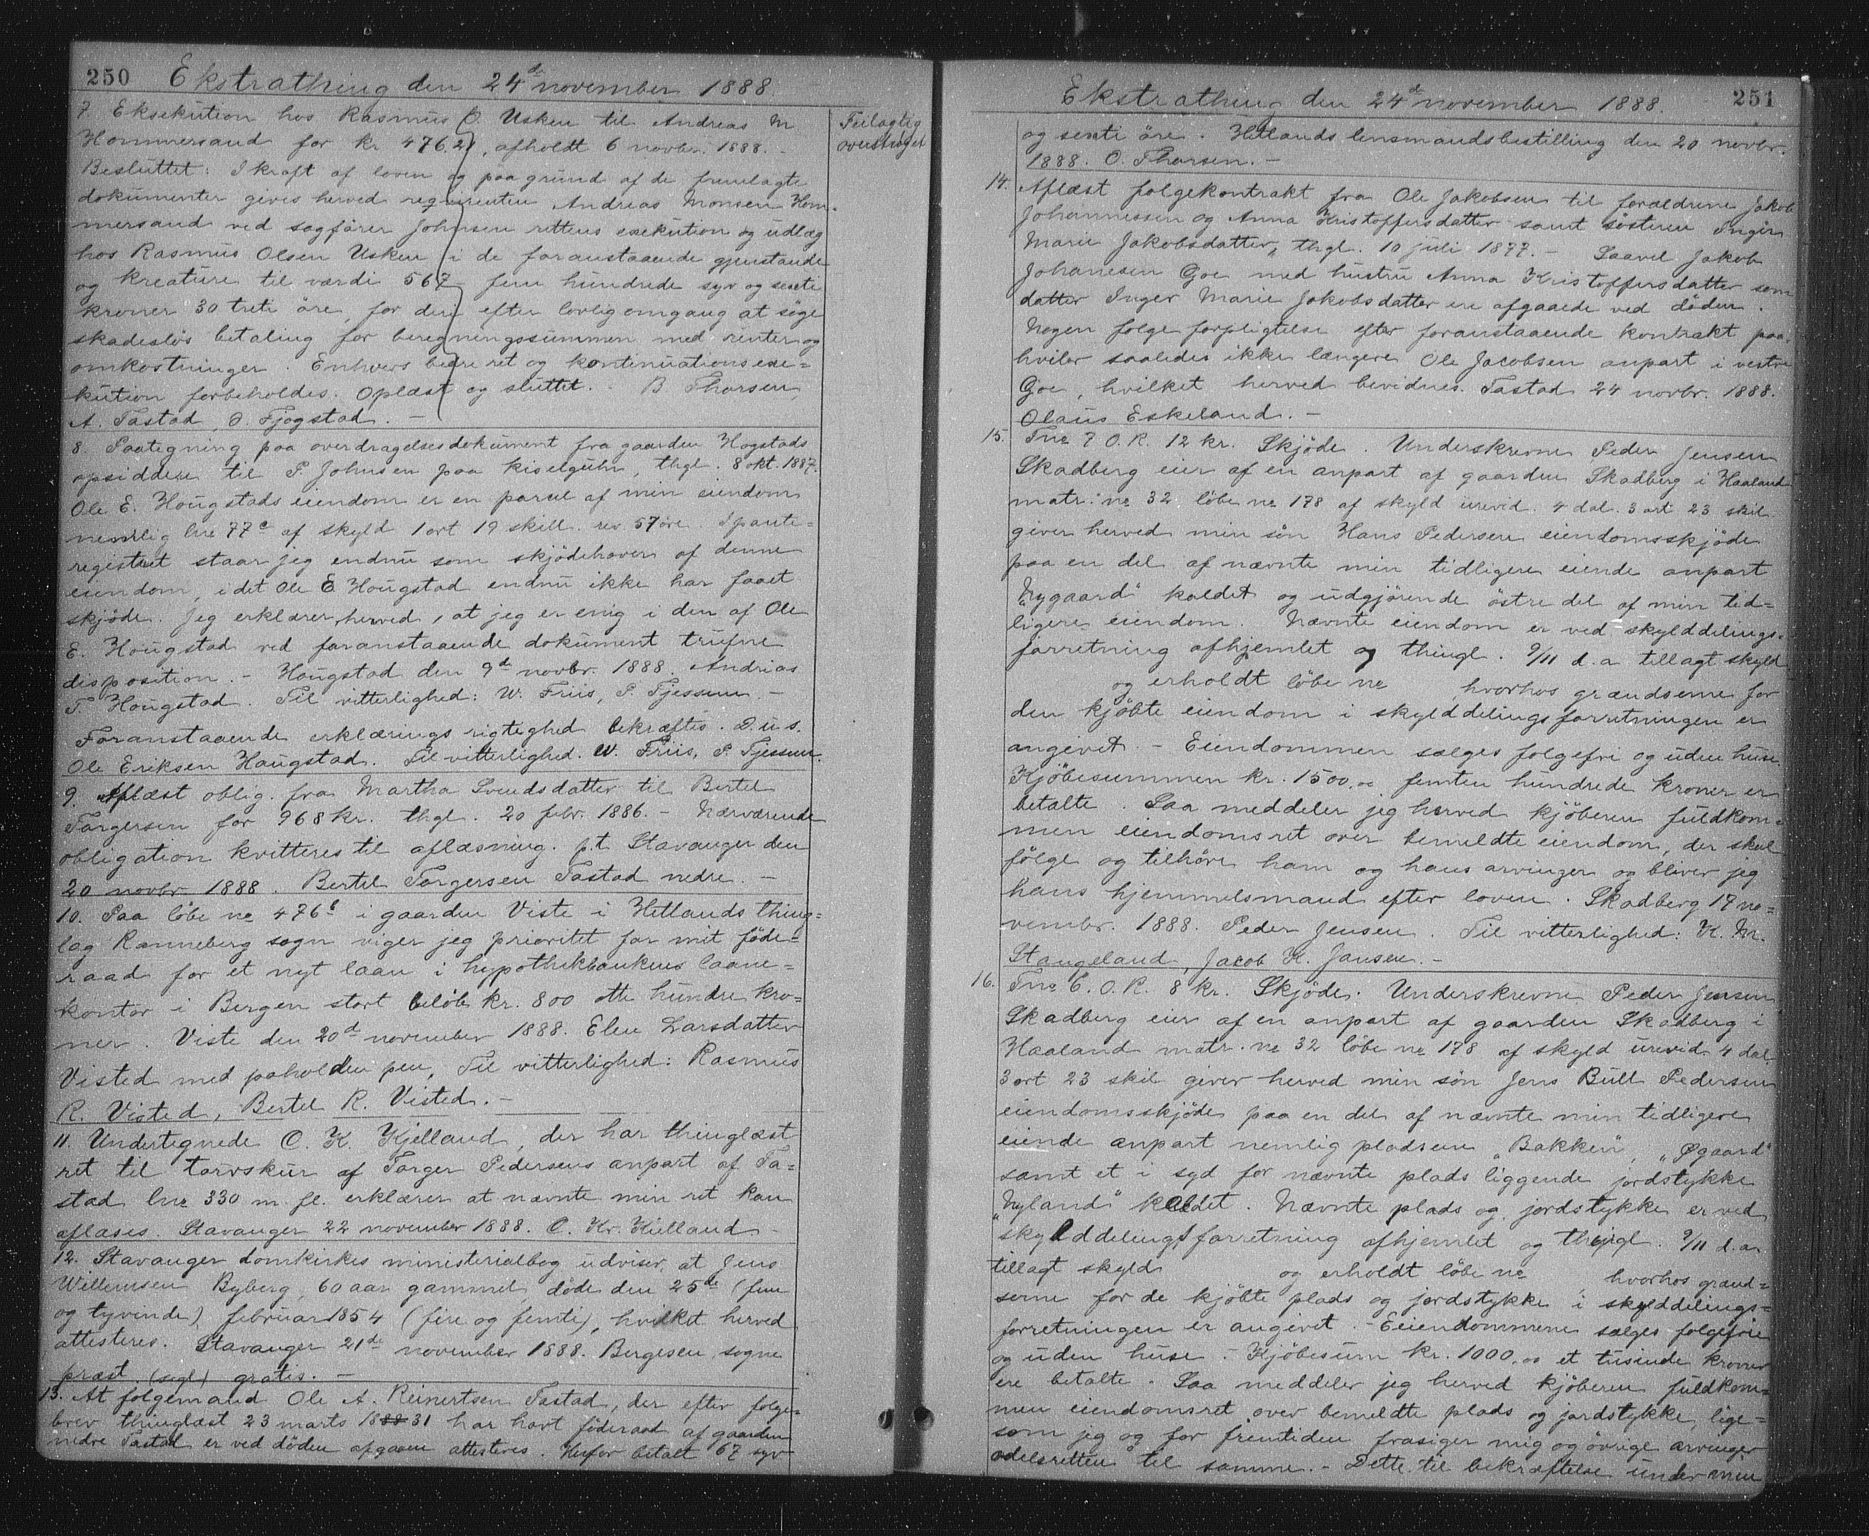 250 Ekstrathing den 24de november 1888.
7. Eksekution hos Rasmus O. Usken til Andreas M
Hommersand for kr 476.21, afholdt 6 novbr. 1888. -
Feilagtig
overstrøget
Besluttet: I kraft af loven og paa grund af de fremlagte
dokumenter gives herved reqvirenten Andreas Monsen Hom-
mersand ved sagfører Johnsen rettens exekution og udlæg
hos Rasmus Olsen Usken i de foranstaaende gjenstande
og kreature til værdi 567 fem hundrede syv og sexti
kroner 30 treti öre, for deri efter lovlig omgang at søge
skadesløs betaling for beregningssummen med renter og
omkostninger. Enhvers bedre ret og kontinuationsexe=
kution forbeholdes. Oplæst og sluttet. B Thorsen,
A. Tastad, O. Fjogstad. -
8. Paategning paa overdragelsesdokument fra gaarden Hogstads
opsiddere til P. Johnsen paa kiselguhr, thgl. 8 okt. 1887.
Ole E. Hougstads eiendom er en parcel af min eiendom
nemlig lnr 77c af skyld 1 ort 19 skill. rev 57 øre. I pante=
registret staar jeg endnu som skjødehaver af denne
eiendom, i det Ole E Hougstad endnu ikke har faaet
skjøde. Jeg erklærer herved, at jeg er enig i den af Ole
E. Hougstad ved foranstaaende dokument trufne
disposition. - Hougstad den 9de novbr. 1888. Andrias
T. Hougstad. Til vitterlighed: W. Friis, P. Tjessem. -
Foranstaaende erklærings rigtighed bekræftes. D.u.s.
Ole Eriksen Haugstad. Til vitterlighed. W. Friis, P. Tjessem.
9. Aflæst oblig. fra Martha Svendsdatter til Bertel
Torgersen for 968 kr. thgl. 20 febr. 1886. - Nærværende
obligation kvitteres til aflæsning. p.t. Stavanger den
20 novbr 1888. Bertel Torgersen Tastad nedre. -
10. Paa løbe no 476b i gaarden Viste i Hetlands thing=
lag Ranneberg sogn viger jeg prioritet for mit føde=
raad for et nyt laan i hypothekbankens laane=
kontor i Bergen stort beløb kr. 800 otte hundre kro=
ner. Viste den 20de november 1888. Elen Larsdatter
Visted med paholden pen, Til vitterlighed: Rasmus
R. Visted, Bertel R. Visted. -
11. Undertegnede O. K Kjelland, der har thinglæst
ret til torvskur af Torger Pedersens anpart af Ta=
stad lnr 330 m. fl. erklærer at nævnte min ret kan
aflæses. Stavanger 22 november 1888. O. Kr. Kielland -
12. Stavanger domkirkes ministerialbog udviser, at Jens
Willumsen Byberg, 60 aar gammel, døde den 25de (fem
og tyvinde) februar 1854 (fire og femti), hvilket herved
attesteres. Stavanger 21de november 1888. Bergesen, sogne
præst. (segl) gratis. -
13. At folgemand Ole A. Reinertsen Tastad, der efter folge=
brev thinglæst 23 marts 1831 har havt føderaad af gaarden
nedre Tastad er ved døden afgaaen attesteres. Herfor betalt 67 syv
Ekstrathing den 24de november 1888. 251
og sexti öre. Hetlands lensmandsbestilling den 20 novbr.
1888. O. Thorsen. -
14. Aflæst folgekontrakt fra Ole Jakobsen til forældrene Jakob
Johannesen og Anna Kristoffersdatter samt søsteren Inger
Marie Jakobsdatter, thgl. 10 juli 1877. - Saavel Jakob
Johanesen Goe med hustru Anna Kristoffersdatter som
datter Inger Marie Jakobsdatter ere afgaaede ved døden.
Nogen folgeforpligtelse efter foranstaaende kontrakt paa-
hviler saaledes ikke længere Ole Jacobsen anpart i vestre
Goe, hvilket herved bevidnes. Tastad 24 novbr. 1888.
Olaus Eskeland. -
15. Tnr 7 O.R. 12 kr. Skjöde. Underskrevne Peder Jensen
Skadberg eier af en anpart af gaarden Skadberg i Haaland
matr. no 32 løbe no 178 af skyld urevid. 4 dal. 3 ort 23 skil.
giver herved min søn Hans Pedersen eiendomsskjøde
paa en del af nævnte min tidligere eiende anpart
„Nygaard" kaldet og udgjørende östre del af min tid=
ligere eiendom. Nævnte eiendom er ved skylddelings=
forretning afhjemlet og thingl. 9/11 d.a tillagt skyld
og erholdt løbe no hvorhos grændserne for
den kjøbte eiendom i skylddelingsforretningen er
angivet. - Eiendommen sælges folgefri og uden huse.
Kjöbesummen kr. 1500,00 femten hundrede kroner er
betalte. Saa meddeler jeg herved kjøberen fuldkom=
men eiendomsret over bemeldte eiendom, der skal
følge og tilhøre ham og hans arvinger og bliver jeg
hans hjemmelsmand efter loven. Skadberg 17 no=
vembr. 1888. Peder Jensen. Til vitterlighed: K. M.
Stangeland, Jacob K. Jansen. -
16. Tnr 6. O.R. 8 kr. Skjöde. Underskrevne Peder Jensen
Skadberg eier af en anpart af gaarden Skadberg i
Haaland matr. no 32 løbe no 178 af skyld urevid. 4 dal.
3 ort 23 skil giver herved min søn Jens Bull Pedersen
eiendomsskjøde paa en del af nævnte min tidligere
eiende anpart nemlig pladsen „Bakken", „Øgaard"
samt et i syd for nævnte plads liggende jordstykke
„Nyland" kaldet. Nævnte plads og jordstykke er ved
skylddelingsforretning afhjemlet og thingl. 9/11 d.a.
tillagt skyld og erholdt løbe no hvorhos grænd=
serne for de kjøbte plads og jordstykke i skylddelings=
forretningen er angivet. - Eiendommene sælges folgefrie
og uden huse. - Kjöbesum kr. 1000,00 et tusinde kroner
ere betalte. Saa meddeler jeg herved kjøberen fuldkom=
men eiendomsret over bemeldte plads og jordstykke, lige=
som jeg og for fremtiden frasiger mig og øvrige arvinger
odelsretten til samme. - Dette til bekræftelse under min